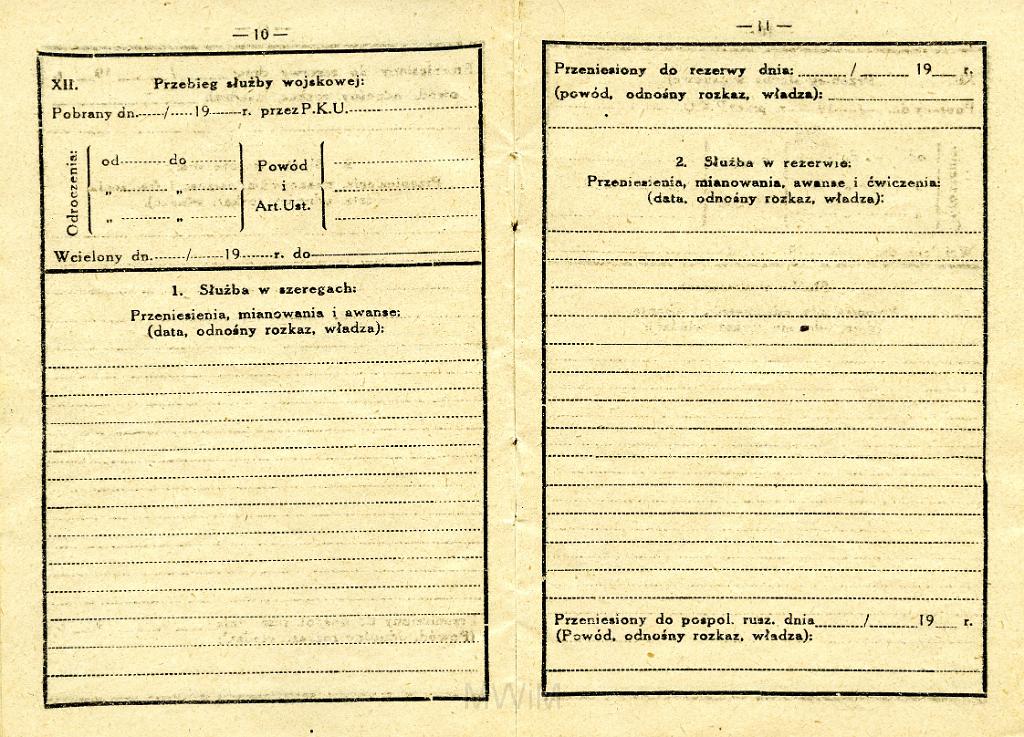 — 10 —
XII. Przebieg służby wojskowej:
Pobrany dn....../.....19.......r. przez P.K.U.
Odroczenia:
od......... do
„ „
„ „
Powód
i
Art.Ust.
Wcielony dn......../........19.......r. do
1. Służba w szeregach:
Przeniesienia, mianowania i awanse:
(data, odnośny rozkaz, władza):
— 11 —
Przeniesiony do rezerwy dnia: ........./........ 19.... r.
(powód, odnośny rozkaz, władza):
2. Służba w rezerwie:
Przeniesienia, mianowania, awanse i ćwiczenia:
(data, odnośny rozkaz, władza):
Przeniesiony do pospol. rusz. dnia......../........ 19.... r.
(Powód, odnośny rozkaz, władza):
MWiM